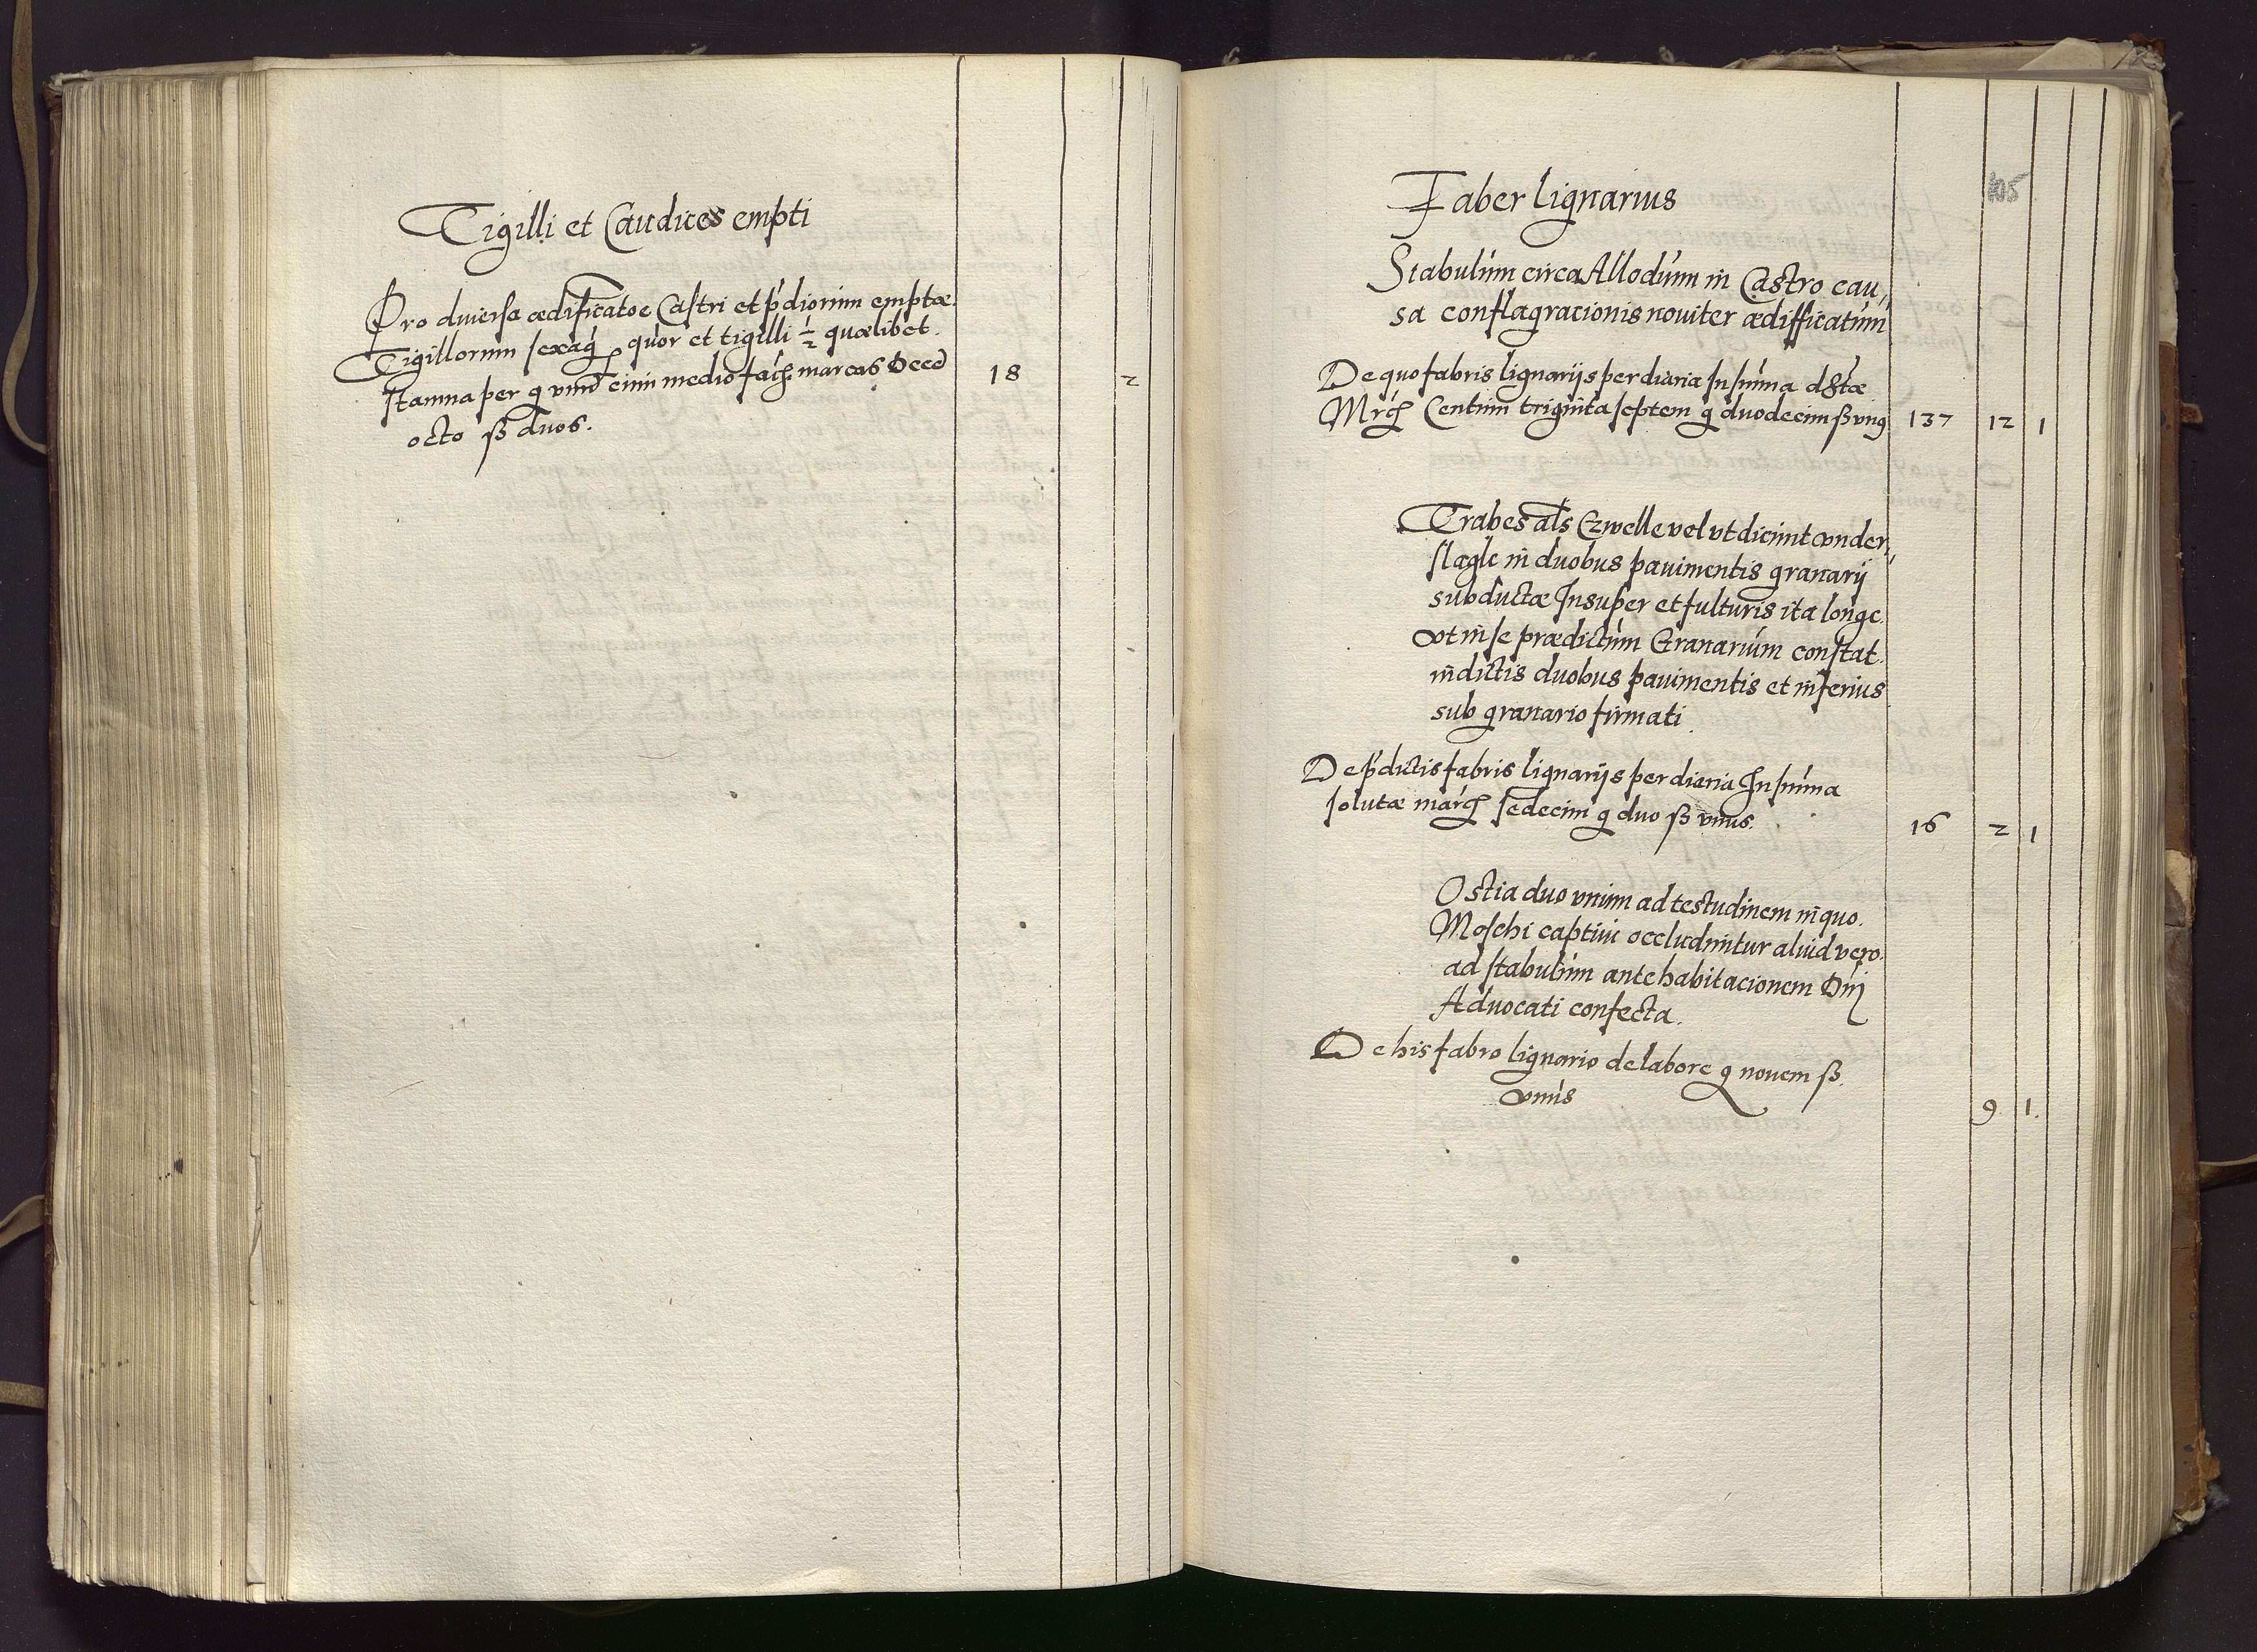 Tigilli et Caudices empti
Pro diuersa ædificatõe Castri et p̃diorum emptæ
Tigillorum sexag. quor et tigilli ½ quælibet
stamna per g vnũ cum medio faĉ. marcas Dece
octo ß duos. 18 2
105
Faber lignarius
Stabulum circa Allodium in Castro cau,,
sa conflagracionis nouiter ædifficatum
De quo fabris lignarijs per diaria In sum̃a dãtæ
Mrc̃ Centum triginta septem g duodecim ß vng 137 12 1
Trabes als Czwelle vel vt dicunt vnder,,
slagk in duobus pauimentis granarij
subductæ Insuper et fulturis ita longe
vt in se prædictum Granarium constat
in dictis duobus pauimentis et inferius
sub granario firmati
De p̃dictis fabris lignarijs per diaria In sum̃a
solutæ marc̃ sedecim g duo ß vnus. 16 2 1
Ostia duo vnum ad testudinem in quo
Moschi captiui occluduntur aliud vero
ad stabulum ante habitacionem Dnj
Aduocati confecta.
De his fabro lignario de labore g nouem ß
vnus 9 1.